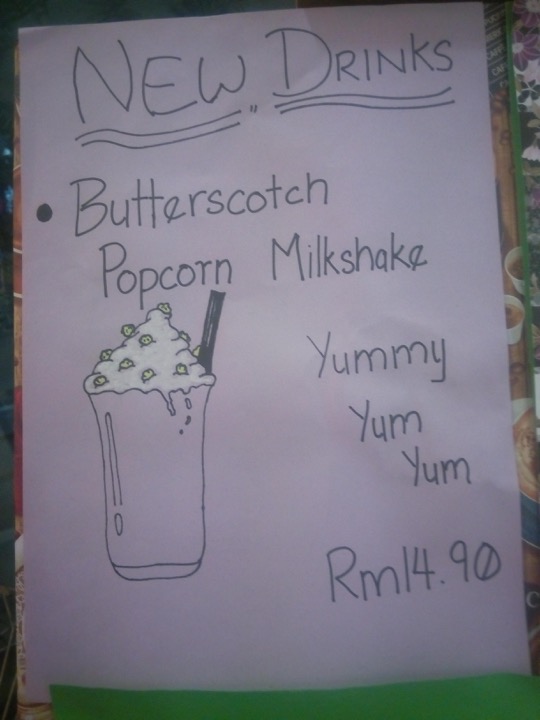 NEW DRINKS
• Butterscotch
Popcorn Milkshake
Yummy
Yum
Yum
Rm14.90